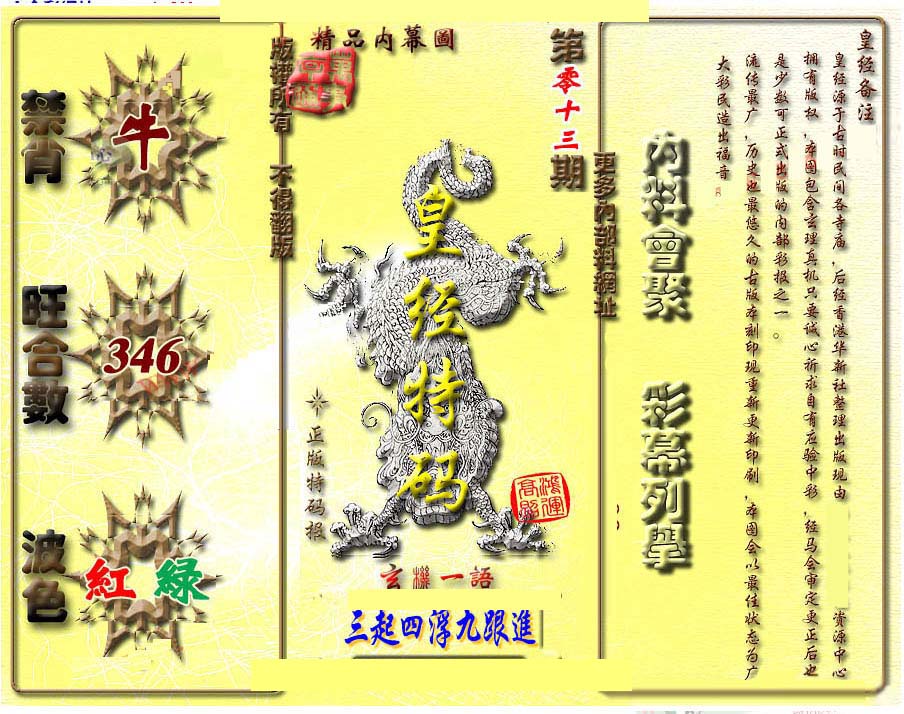 皇经备注
皇经源于古时民间各寺庙，后经香港华新社整理出版现由 资源中心
拥有版权，本图包含玄理真机只要诚心祈求自有应验中彩，经马会审定更正后也
是少数可正式出版的内部彩报之一。
流传最广，历史也最悠久的古版本刻印现重新更新印刷，本图会以最佳状态为广
大彩民造出福音
内料會聚
彩幕列舉
更多內部料網址
第零十三期
精品内幕圖
皇经特码
正版特码报
鴻運高照
玄機一語
三起四浮九跟進
版權所有 不得翻版
禁肖
牛
旺合數
346
波色
紅 綠